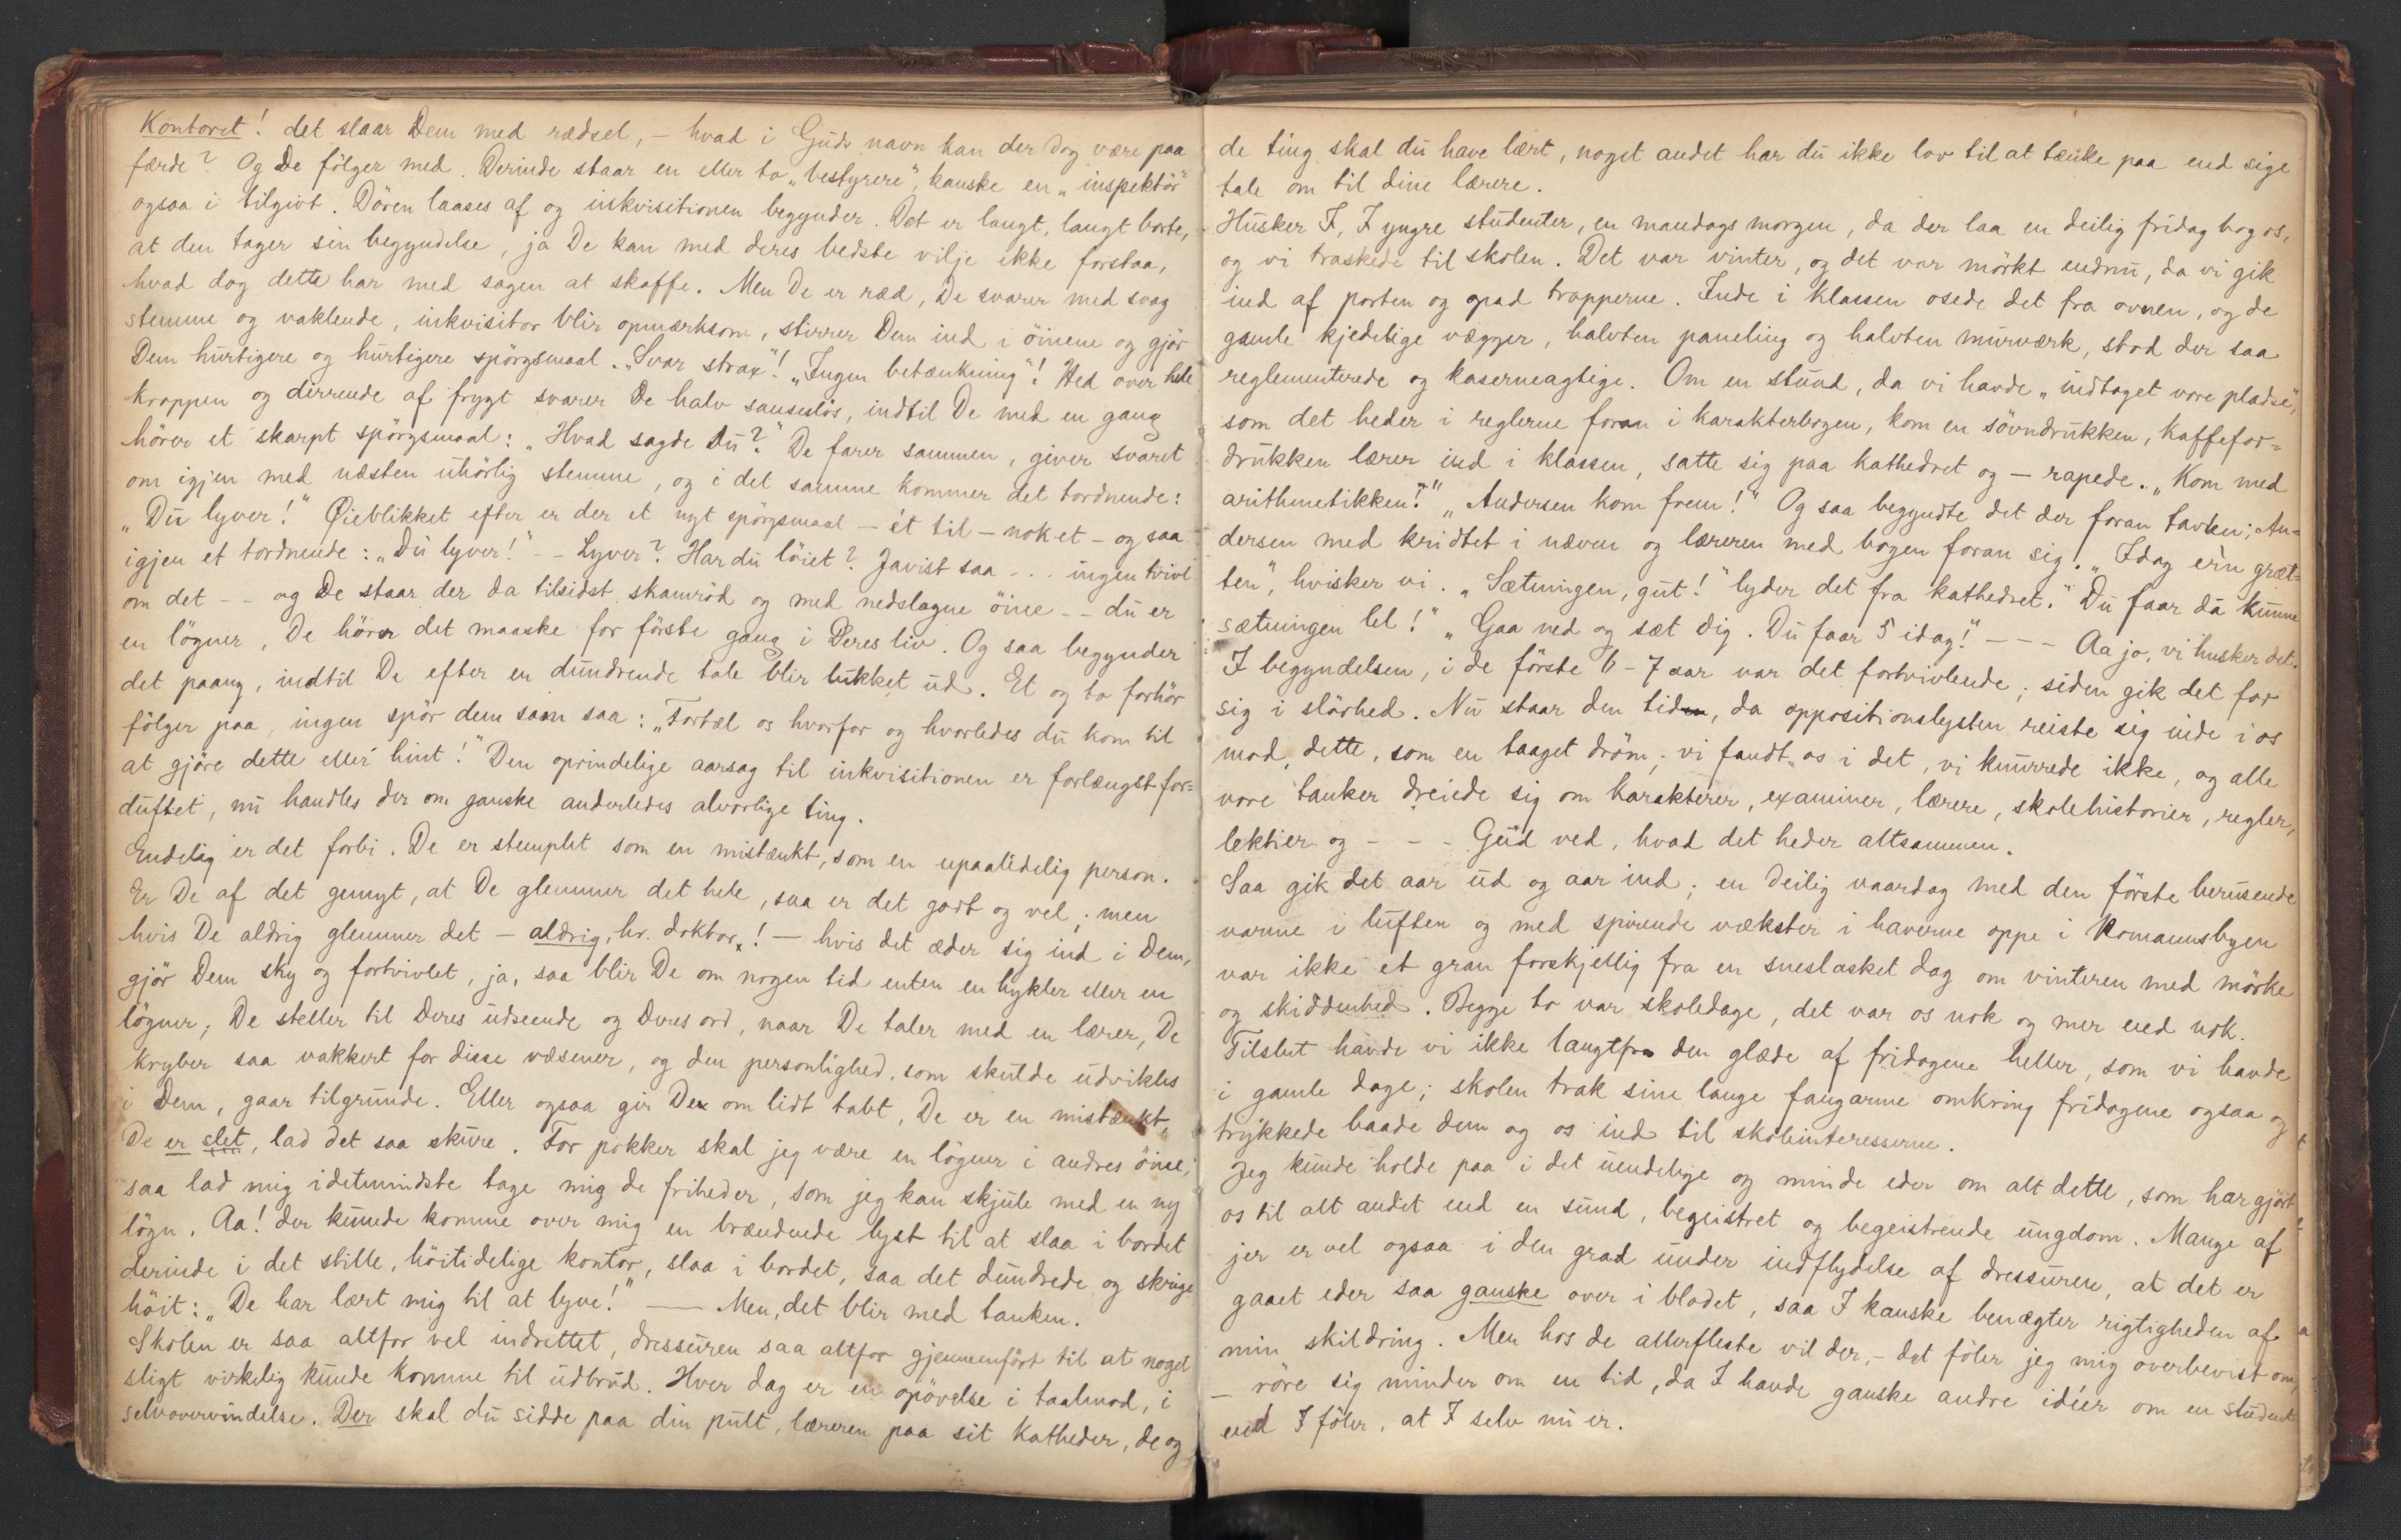 Kontoret! det slaar Dem med rædsel, – hvad i Guds navn kan der dog være paa
færde? Og De følger med. Derinde staar en eller to „bestyrere", kanske en „inspektör"
ogsaa i tilgivt. Dören laases af og inkvisitionen begynder. Det er langt, langt borte,
at den tager sin begyndelse, ja De kan med deres bedste vilje ikke forstaa,
hvad dog dette har med sagen at skaffe. Men De er ræd, De svarer med svag
stemme og vaklende, inkvisitor blir opmærksom, stirrer Dem ind i öinene og gjör
Dem hurtigere og hurtigere spörgsmaal. „Svar strax"! „Ingen betænkning"! Hed over hele
kroppen og dirrende af frygt svarer De halv sanseslös, indtil De med en gang
hörer et skarpt spörgsmaal: „Hvad sagde du?" De farer sammen, giver svaret
om igjen med næsten uhörlig stemme, og i det samme kommer det tordnende:
„Du lyver!" Øieblikket efter er der et nyt spörgsmaal – ét til – nok et – og saa
igjen et tordnende: „Du lyver!" – – Lyver? Har du löiet? Javist saa . . . ingen tvivl
om det – – og De staar der da tilsidst skamröd og med nedslagne öine – – du er
en lögner, De hörer det maaske for förste gang i Deres liv. Og saa begynder
det paany, indtil De efter en dundrende tale blir lukket ud. Et og to forhör
fölger paa, ingen spör dem som saa: „Fortæl os hvorfor og hvorledes du kom til
at gjöre dette eller hint!" Den oprindelige aarsag til inkvisitionen er forlængst for=
duftet, nu handles der om ganske anderledes alvorlige ting.
Endelig er det forbi. De er stemplet som en mistænkt, som en upaalidelig person.
Er De af det gemyt, at De glemmer det hele, saa er det godt og vel; men
hvis De aldrig glemmer det – aldrig, hr. doktor x! – hvis det æder sig ind i Dem,
gjör Dem sky og fortvivlet, ja, saa blir De om nogen tid enten en hykler eller en
lögner; De steller til Deres udseende og Deres ord, naar De taler med en lærer, De
kryber saa vakkert for disse væsener, og den personlighed, som skulde udvikles
i Dem, gaar tilgrunde. Eller ogsaa gir De om lidt tabt, De er en mistænkt,
De er slet, lad det saa skure. For pokker skal jeg være en lögner i andres öine,
saa lad mig idetmindste tage mig de friheder, som jeg kan skjule med en ny
lögn. Aa! der kunde komme over mig en brændende lyst til at slaa i bordet
derinde i det stille, höitidelige kontor, slaa i bordet, saa det dundrede og skrige
höit: „De har lært mig til at lyve!" — Men, det blir med tanken.
Skolen er saa altfor vel indrettet, dressuren saa altfor gjennemfört til at noget
sligt virkelig kunde komme til udbrud. Hver dag er en opövelse i taalmod, i
selvovervindelse. Der skal du sidde paa din pult, læreren paa sit katheder, de og
de ting skal du have lært, noget andet har du ikke lov til at tænke paa end sige
tale om til dine lærere.
Husker I, I yngre studenter, en mandags morgen, da der laa en deilig fridag bag os,
og vi traskede til skolen. Det var vinter, og det var mörkt endnu, da vi gik
ind af porten og opad trapperne. Inde i klassen osede det fra ovnen, og de
gamle kjedelige vægger, halvten paneling og halvten murværk, stod der saa
reglementerede og kaserneagtige. Om en stund, da vi havde „indtaget vore pladse",
som det heder i reglerne foran i karakterbogen, kom en sövndrukken, kaffefor=
drukken lærer ind i klassen, satte sig paa kathedret og – rapede. „Kom med
arithmetikken!" „Andersen kom frem!" Og saa begyndte det der foran tavlen; An=
dersen med kridtet i næven og læreren med bogen foran sig. „Idag er'n græt=
ten", hvisker vi. „Sætningen, gut!" lyder det fra kathedret. „Du faar da kunne
sætningen lel!" „Gaa ned og sæt dig. Du faar 5 idag!" – – – Aa jo, vi husker det.
I begyndelsen, i de förste 6–7 aar var det fortvivlende; siden gik det for
sig i slövhed. Nu staar den tiden, da oppositionslysten reiste sig inde i os
mod dette, som en taaget dröm; vi fandt os i det, vi knurrede ikke, og alle
vore tanker dreiede sig om karakterer, examiner, lærere, skolehistorier, regler,
lektier og – – – Gud ved, hvad det heder altsammen.
Saa gik det aar ud og aar ind; en deilig vaardag med den förste berusende
varme i luften og med spirende vækster i haverne oppe i Homannsbyen
var ikke et gran forskjellig fra en sneslasket dag om vinteren med mörke
og skiddenhed. Begge to var skoledage, det var os nok og mer end nok.
Tilslut havde vi ikke langtfra den glæde af fridagene heller, som vi havde
i gamle dage; skolen trak sine lange fangarme omkring fridagene ogsaa og
trykkede baade dem og os ind til skoleinteresserne.
Jeg kunde holde paa i det uendelige og minde eder om alt dette, som har gjört
os til alt andet end en sund, begeistret og begeistrende ungdom. Mange af
jer er vel ogsaa i den grad under indflydelse af dressuren, at det er
gaaet eder saa ganske over i blodet, saa I kanske benægter rigtigheden af
min skildring. Men hos de allerfleste vil der, – det föler jeg mig overbevist om,
– röre sig minder om en tid, da I havde ganske andre idéer om en student
end I föler, at I selv nu er.